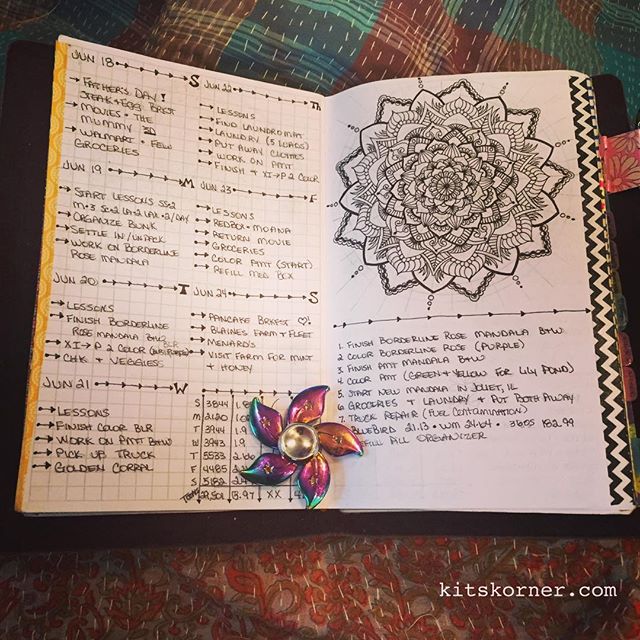 JUN 18 S
→ FATHER'S DAY!
STEAK + EGG BRKFST
→ MOVIES • THE
MUMMY 3D
→ WALMART • FEW
GROCERIES
JUN 19 M
→ START LESSONS
→ ORGANIZE BUNK
→ SETTLE IN/UNPACK
→ WORK ON BORDERLINE
ROSE MANDALA
JUN 20 T
→ LESSONS
→ FINISH BORDERLINE
ROSE MANDALA B+W
→ XI→P 2 COLOR
→ CHK & VEGGIES
JUN 21 W
→ LESSONS
→ FINISH COLOR BLR
→ WORK ON AMT B+W
→ PICK UP TRUCK
→ GOLDEN CORRAL
JUN 22 TH
→ LESSONS
→ FIND LAUNDROMAT
→ LAUNDRY (5 LOADS)
→ PUT AWAY CLOTHES
→ WORK ON AMT
→ FINISH & XI→P 2 COLOR
JUN 23 F
→ LESSONS
→ REDBOX • MOANA
→ RETURN MOVIE
→ GROCERIES
→ COLOR AMT (START)
→ REFILL MED BOX
JUN 24 S
→ PANCAKE BRKFST ♡!
→ BLAINES FARM & FLEET
→ MENARD'S
→ VISIT FARM FOR MINT
& HONEY
S 3844
M 2120
T 3944
W 3943
T 5533
F 4485
S
TOTAL XX
1. FINISH BORDERLINE ROSE MANDALA B+W
2 COLOR BORDERLINE ROSE (PURPLE)
3. FINISH AMT MANDALA B+W
4. COLOR AMT (GREEN & YELLOW FOR LILY POND)
5. START NEW MANDALA IN JOLIET, IL
6 GROCERIES & LAUNDRY & PUT BOTH AWAY
7. TRUCK REPAIR (FUEL CONTAMINATION)
BLUEBIRD 21.13 • WM 24.64 • 182.99
REFILL ALL ORGANIZER
kitskorner.com